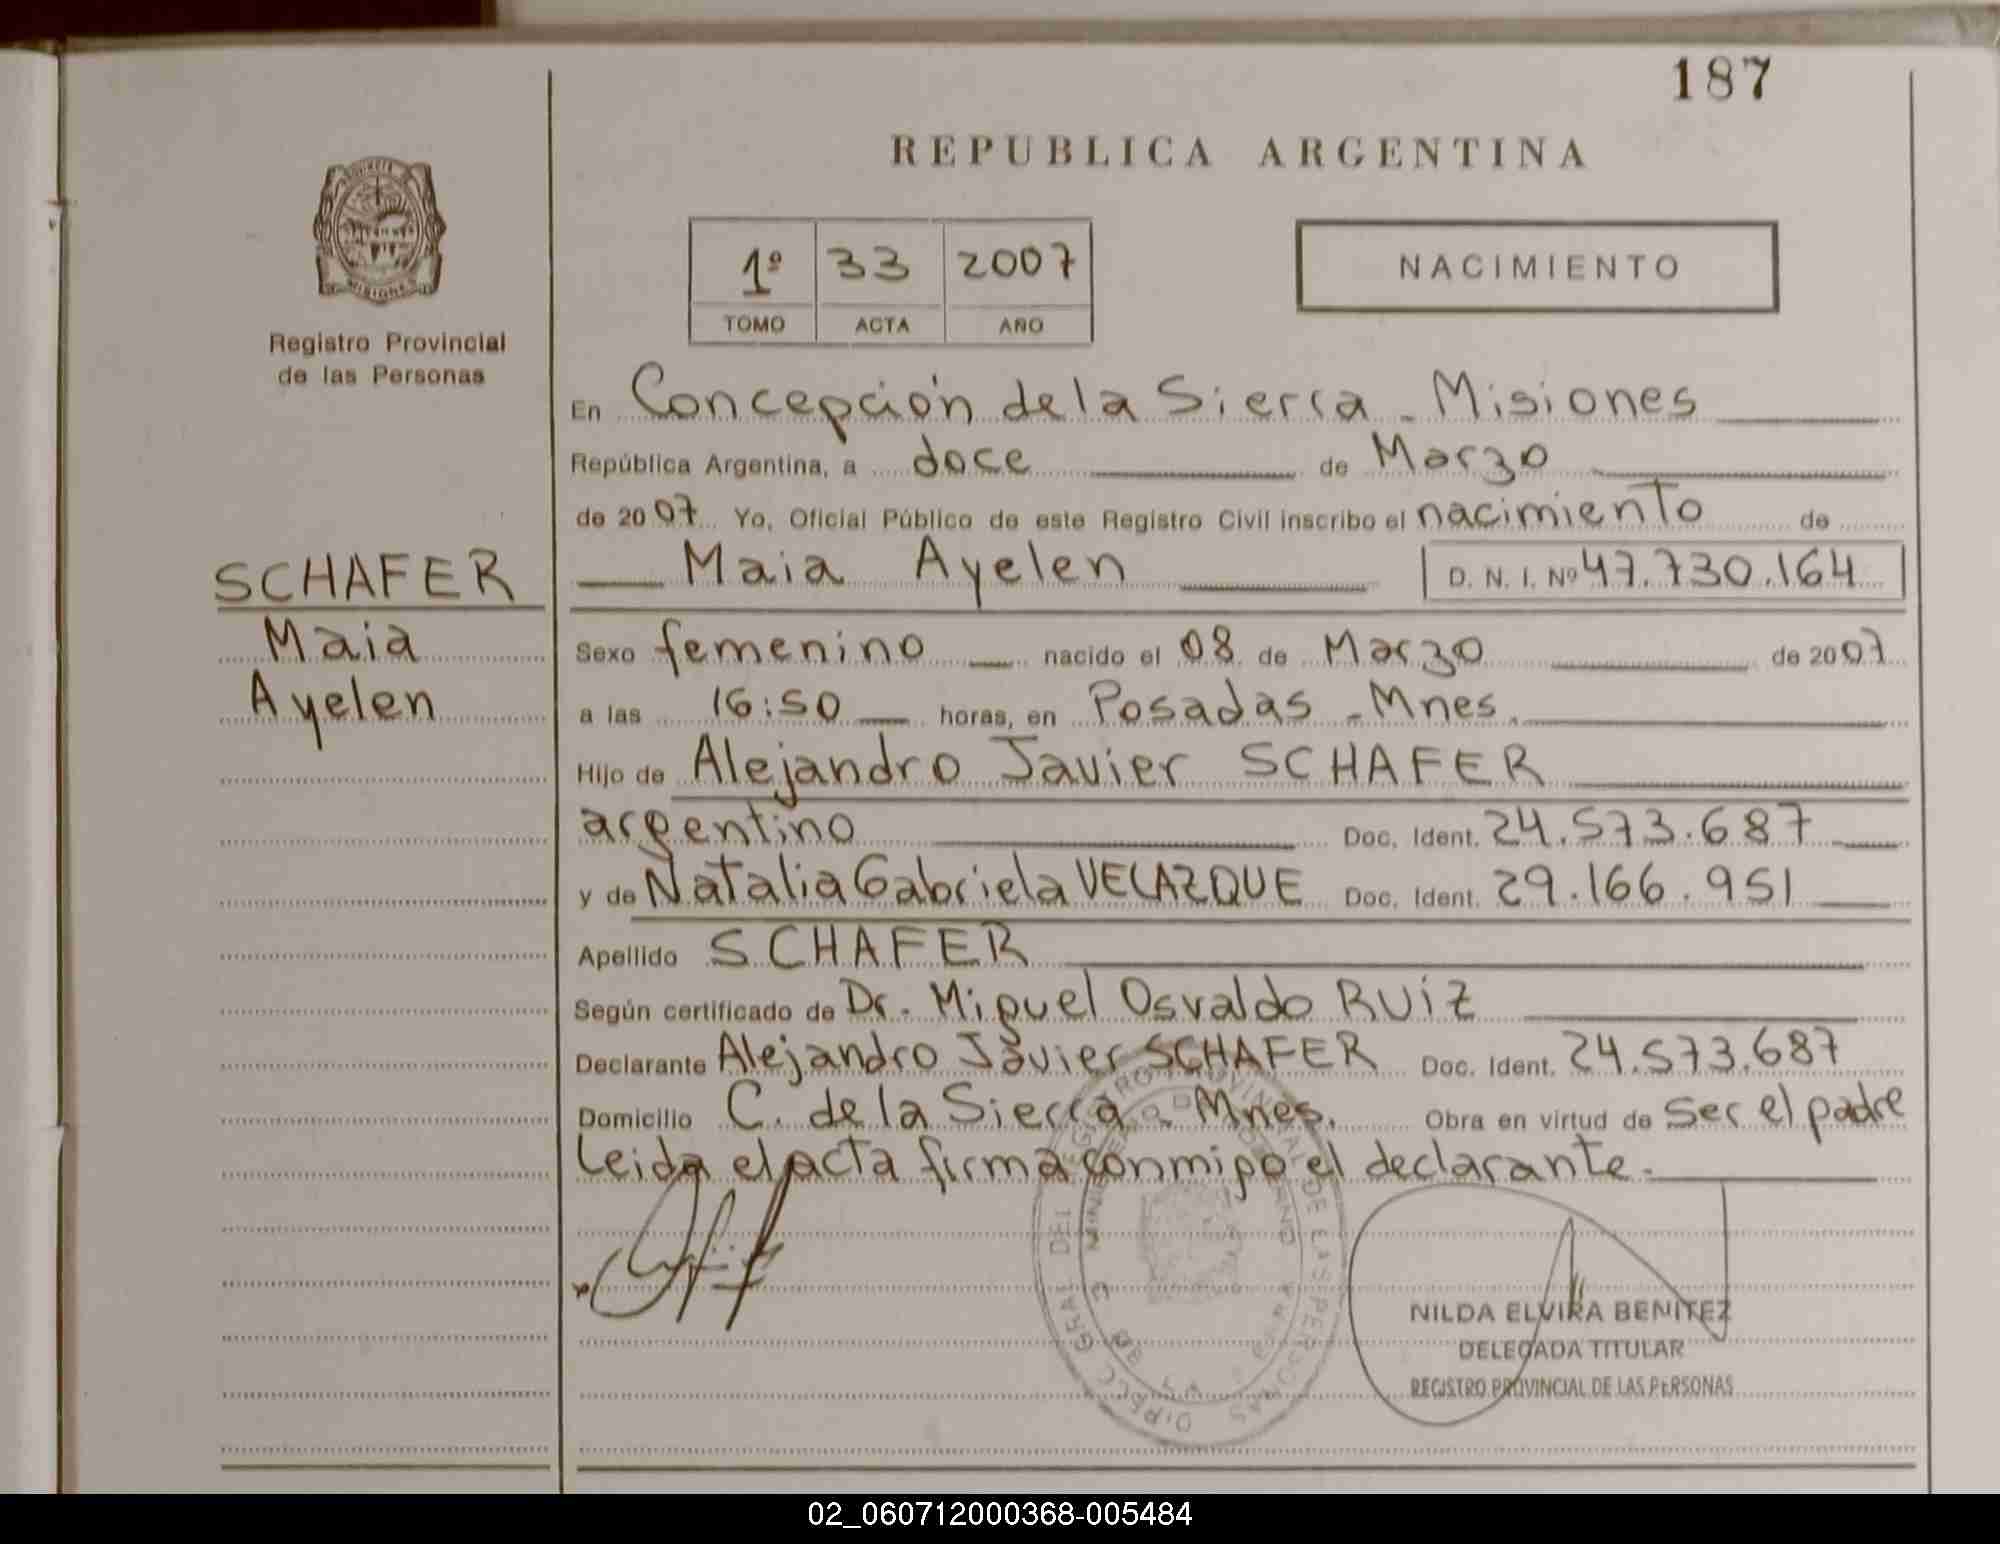 187
REPUBLICA ARGENTINA
MISIONES
Registro Provincial
de las Personas
1º 33 2007
TOMO ACTA AÑO
NACIMIENTO
En Concepción de la Sierra - Misiones
República Argentina, a doce de Marzo
de 2007 Yo, Oficial Público de este Registro Civil inscribo el nacimiento de
Maia Ayelen D. N. I. Nº 47.730.164
SCHAFER
Maia
Ayelen
Sexo femenino nacido el 08 de Marzo de 2007
a las 16:50 horas, en Posadas - Mnes.
Hijo de Alejandro Javier SCHAFER
argentino Doc. Ident. 24.573.687
y de Natalia Gabriela VELAZQUE Doc. Ident. 29.166.951
Apellido SCHAFER
Según certificado de Dr. Miguel Osvaldo RUIZ
Declarante Alejandro Javier SCHAFER Doc. Ident. 24.573.687
Domicilio C. de la Sierra - Mnes. Obra en virtud de Ser el padre
Leida el acta firma conmigo el declarante.
NILDA ELVIRA BENITEZ
DELEGADA TITULAR
REGISTRO PROVINCIAL DE LAS PERSONAS
02_060712000368-005484